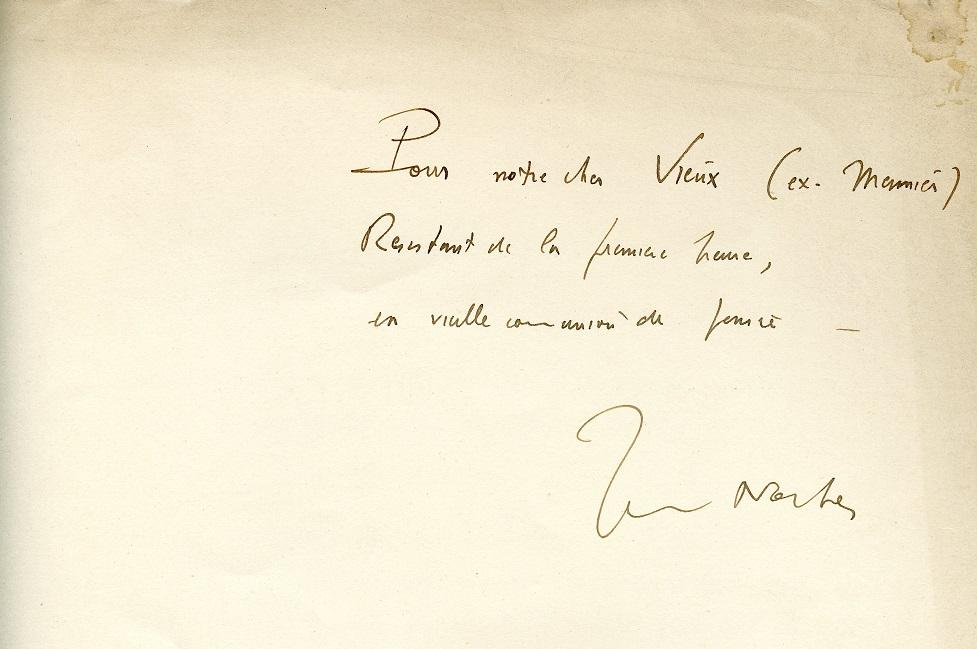 Pour notre cher Vieux (ex. Meunier)
Résistant de la première heure,
en vieille communion de pensée —
Jean